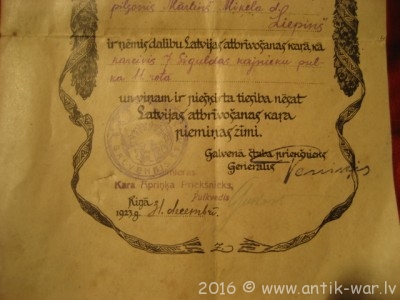 pilsonis Mārtiņš Miķeļa d.
Liepiņš
ir ņēmis dalību Latvijas atbrīvošanas karā, kā
kareivis 7. Siguldas kājnieku pul-
ka 11. rota
un viņam ir piešķirta tiesība nēsāt
Latvijas atbrīvošanas kara
piemiņas zīmi.
Galvenā štaba priekšnieks
Ģenerālis
Kara Apriņķa Priekšnieks,
Pulkvedis
Rīgā,
1923 g. 31. decembrī.
2016 © www.antik-war.lv